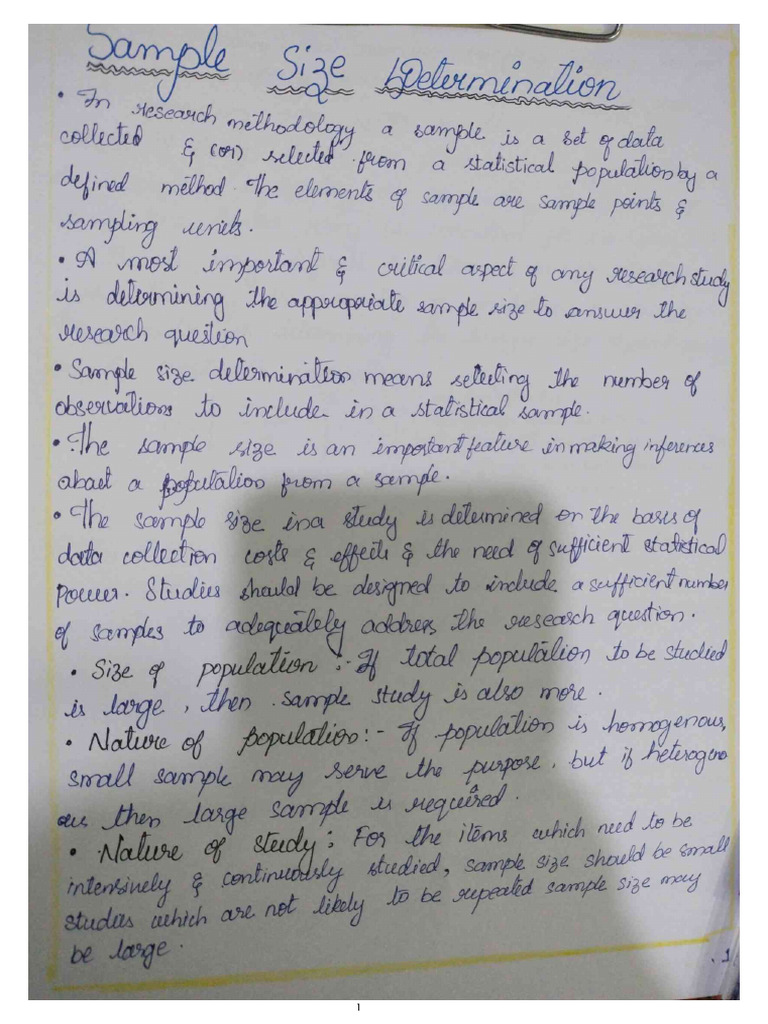 Sample Size Determination
• In research methodology a sample is a set of data
collected & (or) selected from a statistical population by a
defined method. The elements of sample are sample points &
sampling units.
• A most important & critical aspect of any research study
is determining the appropriate sample size to answer the
research question
• Sample size determination means selecting the number of
observations to include in a statistical sample.
• The sample size is an important feature in making inferences
about a population from a sample.
• The sample size in a study is determined on the basis of
data collection costs & effects & the need of sufficient statistical
power. Studies should be designed to include a sufficient number
of samples to adequately address the research question.
• Size of population :- If total population to be studied
is large, then sample study is also more.
• Nature of population:- If population is homogenous,
small sample may serve the purpose, but if heterogeno
us then large sample is required.
• Nature of study: For the items which need to be
intensively & continuously studied, sample size should be small
studies which are not likely to be repeated sample size may
be large.
.1
1